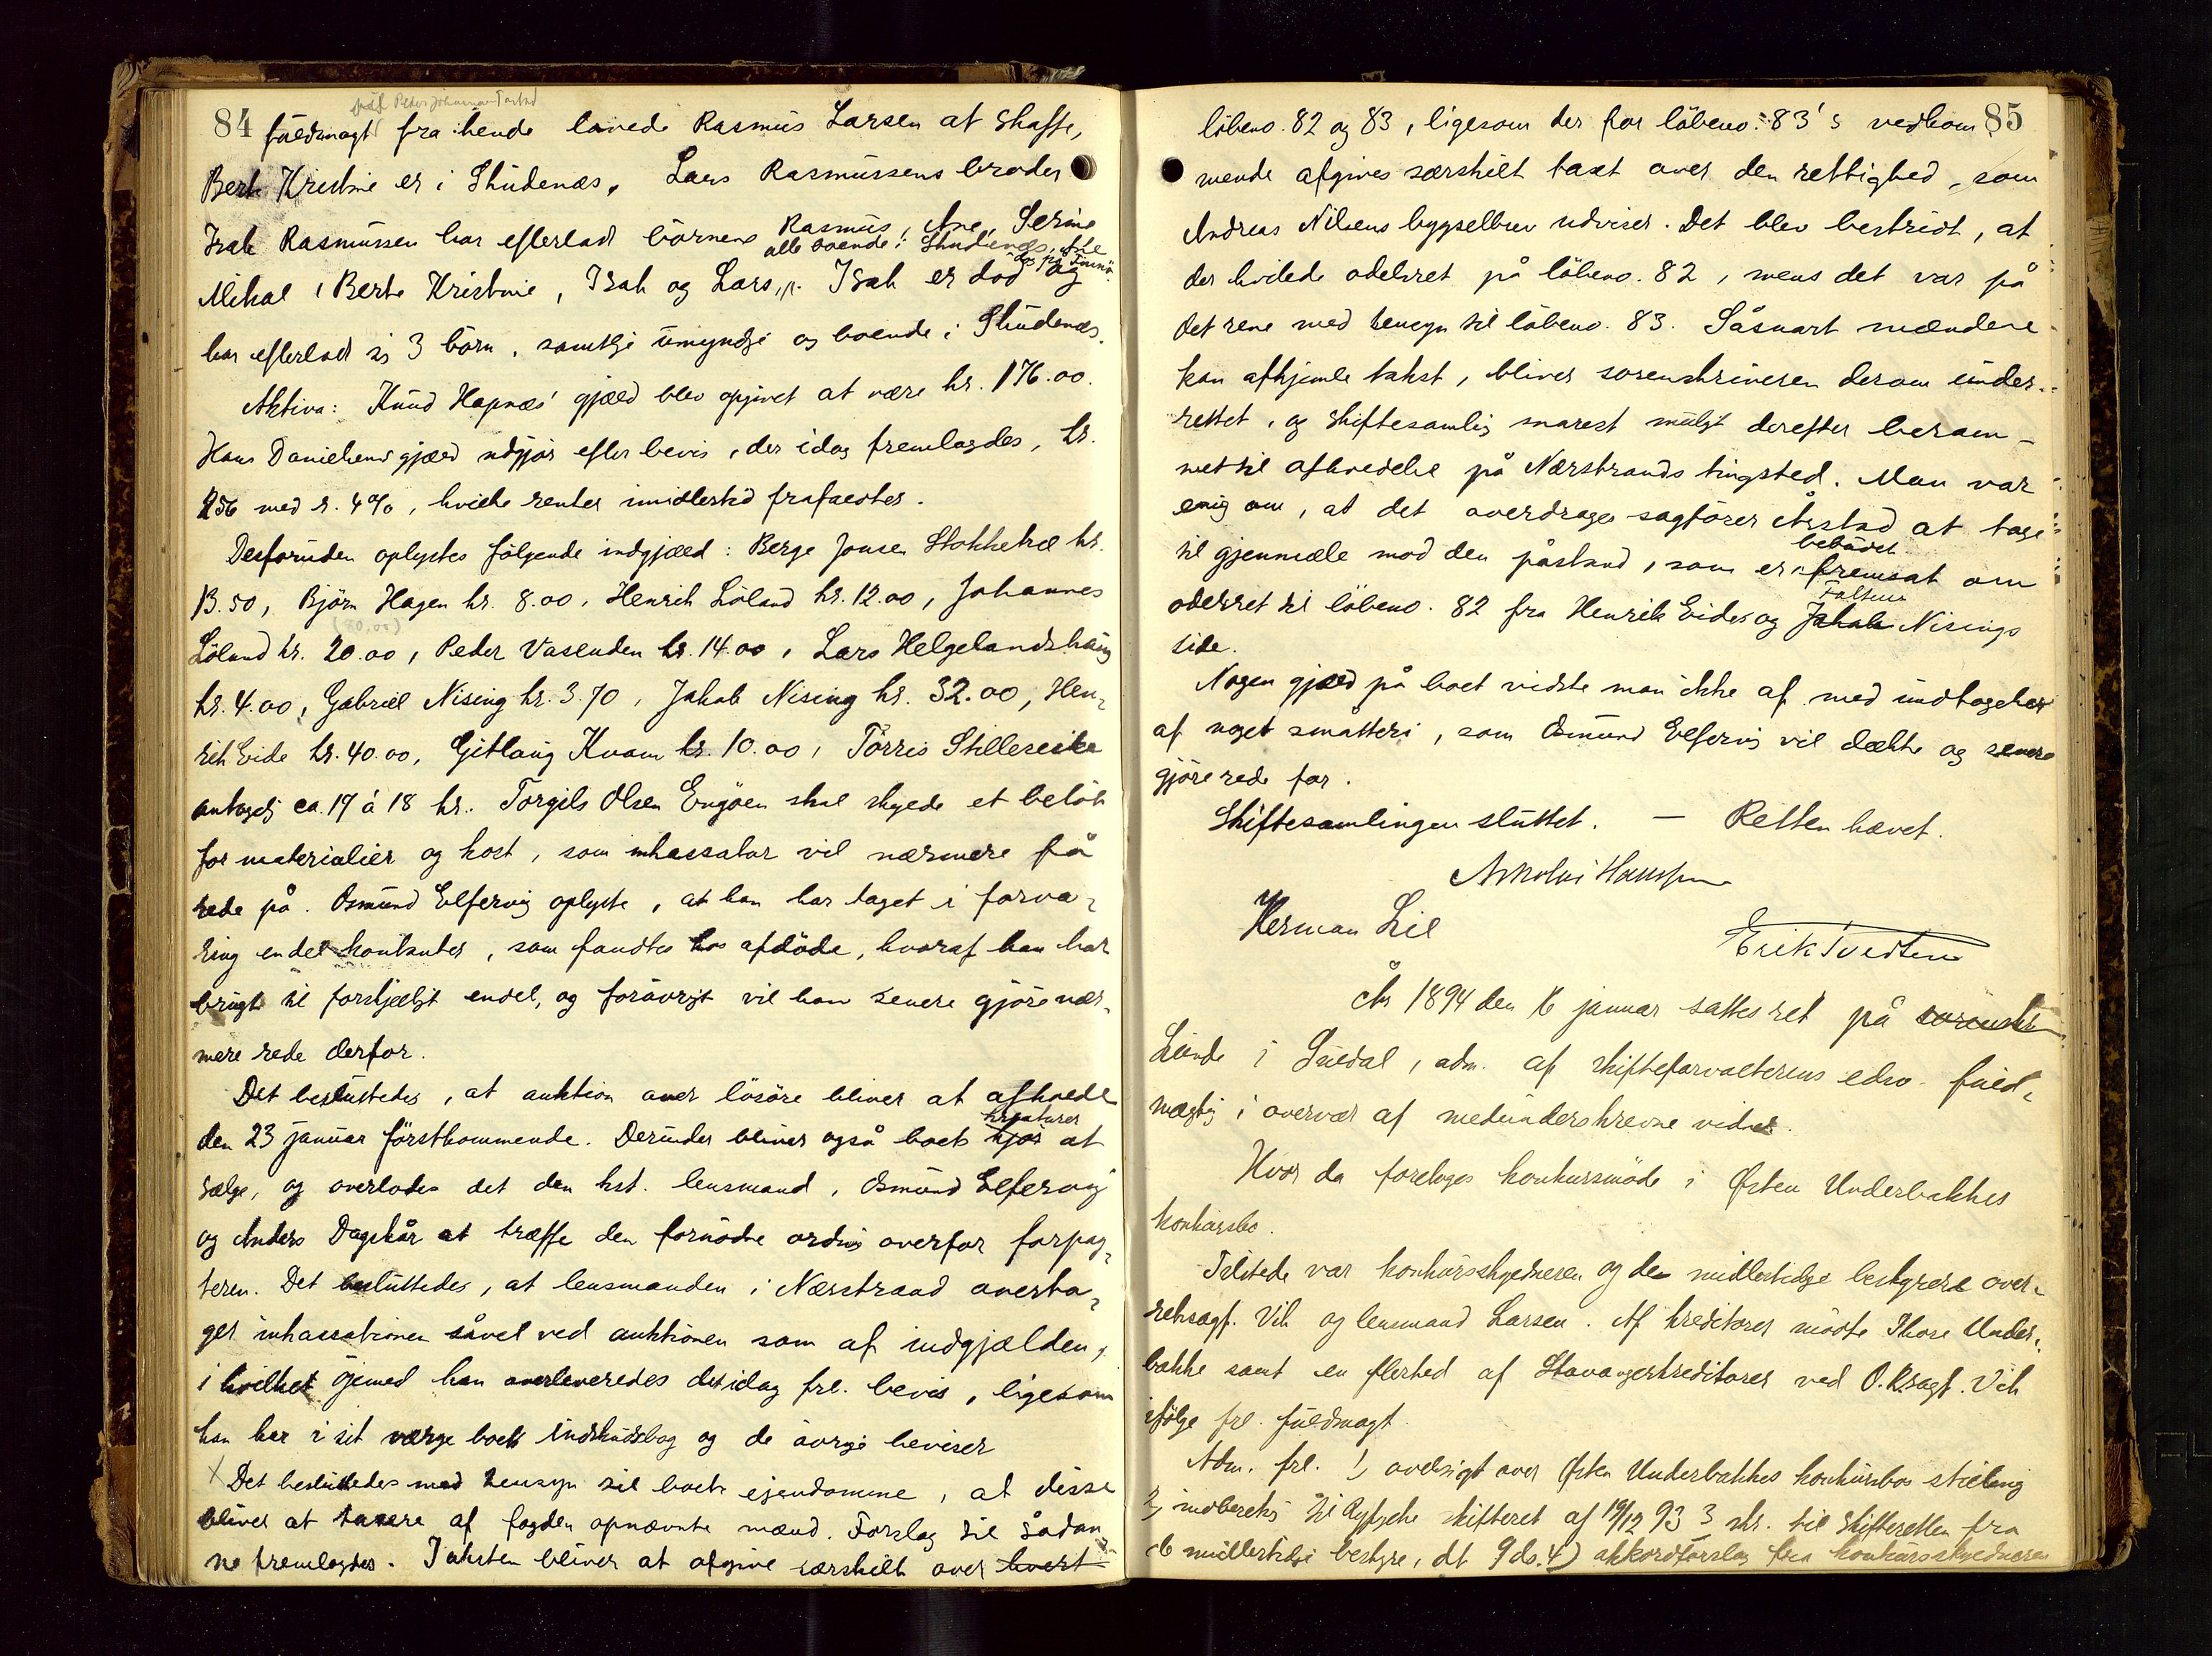 84
Peder Johannessen
fuldmagt fra hende lovede Rasmus Larsen at skaffe,
Berte Kristine er i Skudenæs. Lars Rasmussens broder
Isak Rasmussen har efterladt börnene Rasmus, Ane, Serine
alle boende i Skudenæs, Ane
Mikal, Berte Kristine, Isak og Lars. Isak er död og
har efterladt sig 3 börn, samtlige umyndige og boende i Skudenæs.
Aktiva: Knud Hapnæs' gjæld blev opgivet at være kr. 176.00.
Hans Danielsens gjæld udgjör efter bevis, der idag fremlagdes, kr.
256 med r. 4%, hvilke renter imidlertid frafaldtes.
Desforuden oplystes fölgende indgjæld: Berge Jonsen Stokketræ kr.
13.50, Björn Hagen kr. 8.00, Henrik Löland kr. 12.00, Johannes
(80,00)
Löland kr. 20.00, Peder Vasenden kr. 14.00, Lars Helgelandshaug
kr. 4.00, Gabriel Nising kr. 3.70, Jakob Nising kr. 32.00, Hen-
rik Eide kr. 40.00, Gitlaug Kvam kr. 10.00, Törris Stillereite
antagelig ca. 17 á 18 kr. Torgils Olsen Engöen skal skylde et belöb
for materialier og kost, som inkassator vil nærmere få
rede på. Osmund Elfervig oplyste, at han har taget i forva-
ring endel kontanter, som fandtes hos afdöde, hvoraf han har
brugt til forskjelligt endel, og forövrigt vil han senere gjöre nær-
mere rede derfor.
Det besluttedes, at auktion over lösöre bliver at afholde
kreaturer
den 23 januar förstkommende. Derunder bliver også boets kjör at
sælge, og overlodes det den kst. lensmand, Osmund Elfervig
og Anders Dagskår at træffe den fornödne ordning overfor forpag-
teren. Det besluttedes, at lensmanden i Nærstrand overta-
ger inkassationen såvel ved auktionen som af indgjælden,
i hvilket öjemed han overleveredes det idag frl. bevis, ligesom
han har i sit værge boets indskudsbog og de övrige beviser
X Det besluttedes med hensyn til boets ejendomme, at disse
bliver at taxere af fogden opnævnte mænd. Forslag til sådan-
ne fremlagdes. Taksten bliver at afgive særskilt over hvert
85
löbeno. 82 og 83, ligesom der for löbeno. 83's vedkom
mende afgives særskilt taxt over den rettighed, som
Andreas Nilsens bygselbrev udviser. Det blev bestridt, at
der hvilede odelsret på löbeno. 82, mens det var på
det rene med hensyn til löbeno. 83. Såsnart mændene
kan afhjemle takst, bliver sorenskriveren derom under-
rettet, og skiftesamling snarest muligt derefter beram-
met til afholdelse på Nærstrands tingsted. Man var
enig om, at det overdrages sagförer Årstad at tage
bebudet
til gjenmæle mod den påstand, som er fremsat om
odelsret til löbeno. 82 fra Henrik Eides og Jakob Nisings
side.
Nogen gjæld på boet vidste man ikke af med undtagelse
af noget småtteri, som Osmund Elfervig vil dække og senere
gjöre rede for.
Skiftesamlingen sluttet. — Retten hævet.
Nikolai Hanssen
Herman Lie
Erik Tvedten
År 1894 den 16 januar sattes ret på sorenskr
Lunde i Suldal, adm. af skifteforvalterens edsv. fuld-
mægtig i overvær af medunderskrevne vidner.
Hvor da foretoges konkursmöde i Östen Underbakkes
konkursbo.
Tilstede var konkursskyldneren og de midlertidige bestyrere over-
retssagf. Vik og lensmand Larsen. Af kreditorer mödte Thore Under-
bakke samt en flerhed af Stavangerkreditorer ved O.R.sagf. Vik
ifölge frl. fuldmagt.
Adm. frl. 1) oversigt over Östen Underbakkes konkursbos stilling
2) indberetning til Ryfylke skifteret af 19/12 93 3 skr. til skifteretten fra
de midlertidige bestyre, dt 9 ds. 4) akkordforslag fra konkursskyldneren